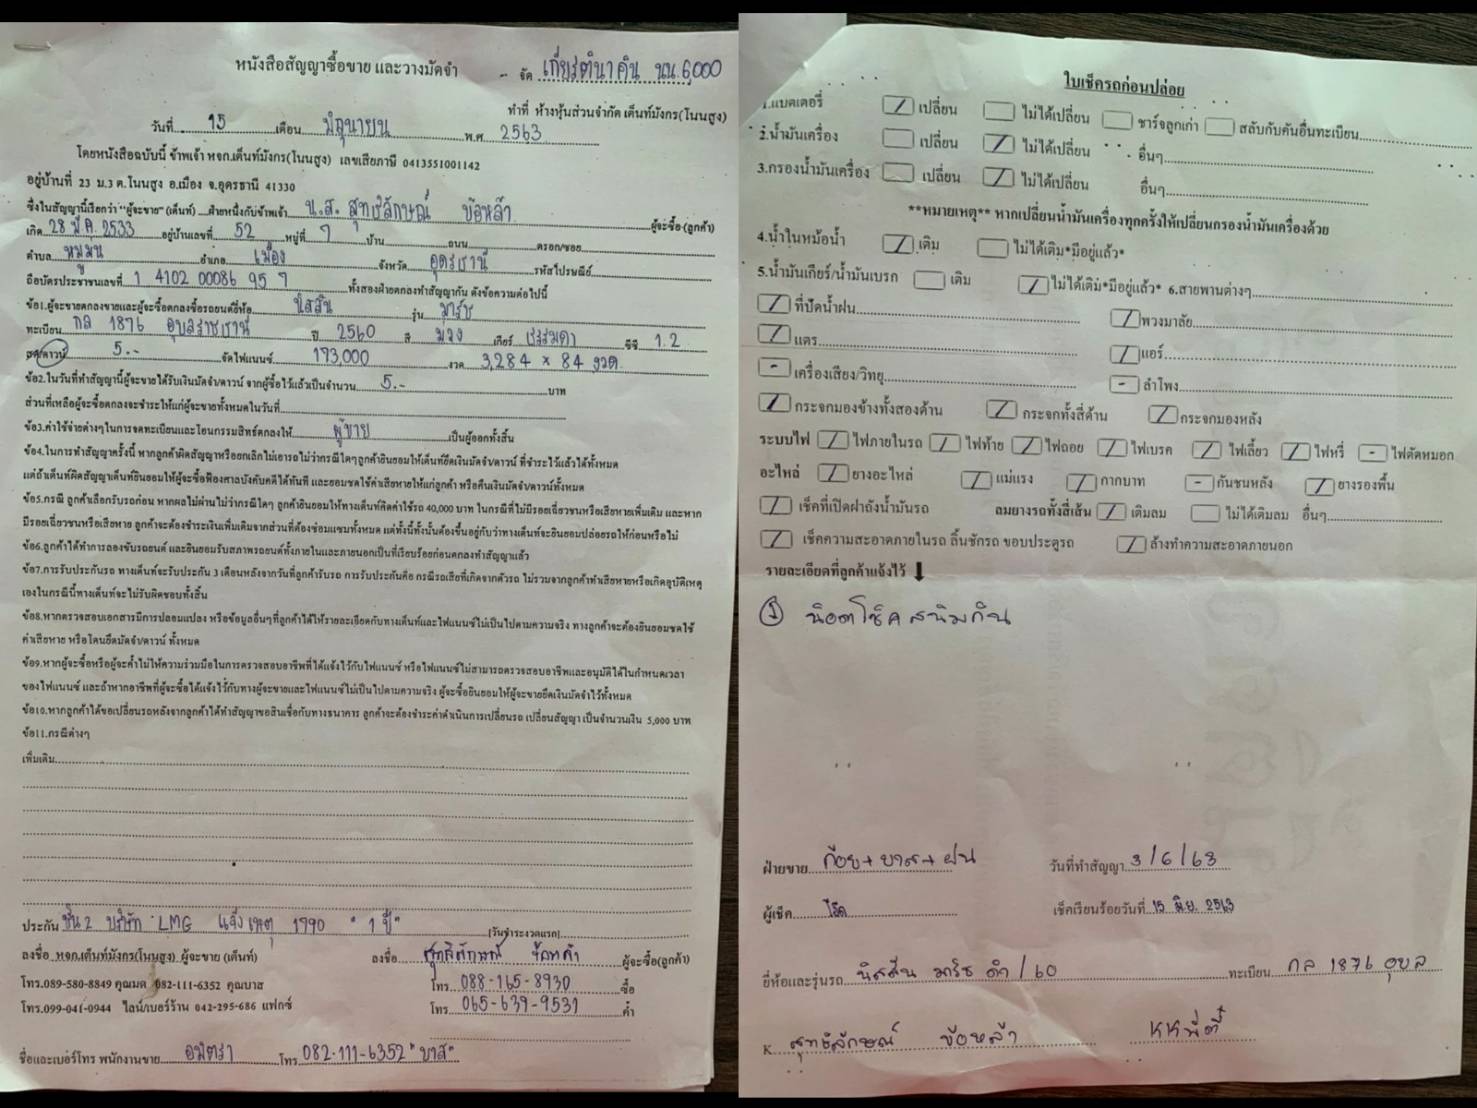 หนังสือสัญญาซื้อขาย และวางมัดจำ - จัด เกียรตินาคิน นน.6000
ทำที่ ห้างหุ้นส่วนจำกัด เต็นท์มังกร(โนนสูง)
วันที่ 15 เดือน มิถุนายน พ.ศ. 2563
โดยหนังสือฉบับนี้ ข้าพเจ้า หจก.เต็นท์มังกร(โนนสูง) เลขเสียภาษี 0413551001142
อยู่บ้านที่ 23 ม.3 ต.โนนสูง อ.เมือง จ.อุดรธานี 41330
ซึ่งในสัญญานี้เรียกว่า "ผู้จะขาย" (เต็นท์) ฝ่ายหนึ่งกับข้าพเจ้า น.ส. สุทธิลักษณ์ ข้อหล้า ผู้จะซื้อ (ลูกค้า)
เกิด 28 มี.ค. 2533 อยู่บ้านเลขที่ 52 หมู่ที่ 7 บ้าน ถนน ตรอก/ซอย
ตำบล หมูม่น อำเภอ เมือง จังหวัด อุดรธานี รหัสไปรษณีย์
ถือบัตรประชาชนเลขที่ 1 4102 00086 95 7 ทั้งสองฝ่ายตกลงทำสัญญากัน ดังข้อความต่อไปนี้
ข้อ1.ผู้จะขายตกลงขายและผู้จะซื้อตกลงซื้อรถยนต์ยี่ห้อ นิสสัน รุ่น มาร์ช
ทะเบียน กล 1876 อุบลราชธานี ปี 2560 สี ม่วง เกียร์ ธรรมดา ซีซี 1.2
สด/ดาวน์ 5.- จัดไฟแนนซ์ 193,000 งวด 3,284 x 84 งวด
ข้อ2.ในวันที่ทำสัญญานี้ผู้จะขายได้รับเงินมัดจำ/ดาวน์ จากผู้ซื้อไว้แล้วเป็นจำนวน 5.- บาท
ส่วนที่เหลือผู้จะซื้อตกลงจะชำระให้แก่ผู้จะขายทั้งหมดในวันที่
ข้อ3.ค่าใช้จ่ายต่างๆในการจดทะเบียนและโอนกรรมสิทธ์ตกลงให้ ผู้ขาย เป็นผู้ออกทั้งสิ้น
ข้อ4.ในการทำสัญญาครั้งนี้ หากลูกค้าผิดสัญญาหรือยกเลิกไม่เอารถไม่ว่ากรณีใดๆลูกค้ายินยอมให้เต็นท์ยึดเงินมัดจำ/ดาวน์ ที่ชำระไว้แล้วได้ทั้งหมด
แต่ถ้าเต็นท์ผิดสัญญาเต็นท์ยินยอมให้ผู้จะซื้อฟ้องศาลบังคับคดีได้ทันที และยอมชดใช้ค่าเสียหายให้แก่ลูกค้า หรือคืนเงินมัดจำ/ดาวน์ทั้งหมด
ข้อ5.กรณี ลูกค้าเลือกรับรถก่อน หากผลไม่ผ่านไม่ว่ากรณีใดๆ ลูกค้ายินยอมให้ทางเต็นท์คิดค่าใช้รถ 40,000 บาท ในกรณีที่ไม่มีรอยเฉี่ยวชนหรือเสียหายเพิ่มเติม และหาก
มีรอยเฉี่ยวชนหรือเสียหาย ลูกค้าจะต้องชำระเงินเพิ่มเติมจากส่วนที่ต้องซ่อมแซมทั้งหมด แต่ทั้งนี้ทั้งนั้นต้องขึ้นอยู่กับว่าทางเต็นท์จะยินยอมปล่อยรถให้ก่อนหรือไม่
ข้อ6.ลูกค้าได้ทำการลองขับรถยนต์ และยินยอมรับสภาพรถยนต์ทั้งภายในและภายนอกเป็นที่เรียบร้อยก่อนตกลงทำสัญญาแล้ว
ข้อ7.การรับประกันรถ ทางเต็นท์จะรับประกัน 3 เดือนหลังจากวันที่ลูกค้ารับรถ การรับประกันคือ กรณีรถเสียที่เกิดจากตัวรถ ไม่รวมจากลูกค้าทำเสียหายหรือเกิดอุบัติเหตุ
เองในกรณีนี้ทางเต็นท์จะไม่รับผิดชอบทั้งสิ้น
ข้อ8.หากตรวจสอบเอกสารมีการปลอมแปลง หรือข้อมูลอื่นๆที่ลูกค้าได้ให้รายละเอียดกับทางเต็นท์และไฟแนนซ์ไม่เป็นไปตามความจริง ทางลูกค้าจะต้องยินยอมชดใช้
ค่าเสียหาย หรือโดนยึดมัดจำ/ดาวน์ ทั้งหมด
ข้อ9.หากผู้จะซื้อหรือผู้จะค้ำไม่ให้ความร่วมมือในการตรวจสอบอาชีพที่ได้แจ้งไว้กับไฟแนนซ์ หรือไฟแนนซ์ไม่สามารถตรวจสอบอาชีพและอนุมัติได้ในกำหนดเวลา
ของไฟแนนซ์ และถ้าหากอาชีพที่ผู้จะซื้อได้แจ้งไว้กับทางผู้จะขายและไฟแนนซ์ไม่เป็นไปตามความจริง ผู้จะซื้อยินยอมให้ผู้จะขายยึดเงินมัดจำไว้ทั้งหมด
ข้อ10.หากลูกค้าได้ขอเปลี่ยนรถหลังจากลูกค้าได้ทำสัญญาขอสินเชื่อกับทางธนาคาร ลูกค้าจะต้องชำระค่าดำเนินการเปลี่ยนรถ เปลี่ยนสัญญา เป็นจำนวนเงิน 5,000 บาท
ข้อ11.กรณีต่างๆ
เพิ่มเติม
ประกัน ชั้น 2 บริษัท LMG แจ้งเหตุ 1790 "1 ปี" (วันชำระงวดแรก)
ลงชื่อ หจก.เต็นท์มังกร(โนนสูง) ผู้จะขาย (เต็นท์) ลงชื่อ สุทธิลักษณ์ ข้อหล้า ผู้จะซื้อ(ลูกค้า)
โทร.089-580-8849 คุณมด 082-111-6352 คุณบาส โทร 088-165-8930 ซื้อ
โทร.099-041-0944 ไลน์/เบอร์ร้าน 042-295-686 แฟกซ์ โทร 065-639-9531 ค้ำ
ชื่อและเบอร์โทร พนักงานขาย อมิตรา โทร 082-111-6352 "บาส"
ใบเช็ครถก่อนปล่อย
1.แบตเตอรี่ / เปลี่ยน ไม่ได้เปลี่ยน ชาร์จลูกเก่า สลับกับคันอื่นทะเบียน
2.น้ำมันเครื่อง เปลี่ยน / ไม่ได้เปลี่ยน อื่นๆ
3.กรองน้ำมันเครื่อง เปลี่ยน / ไม่ได้เปลี่ยน อื่นๆ
**หมายเหตุ** หากเปลี่ยนน้ำมันเครื่องทุกครั้งให้เปลี่ยนกรองน้ำมันเครื่องด้วย
4.น้ำในหม้อน้ำ / เติม ไม่ได้เติม*มีอยู่แล้ว*
5.น้ำมันเกียร์/น้ำมันเบรก เติม / ไม่ได้เติม*มีอยู่แล้ว* 6.สายพานต่างๆ
/ ที่ปัดน้ำฝน / พวงมาลัย
/ แตร / แอร์
- เครื่องเสียง/วิทยุ - ลำโพง
/ กระจกมองข้างทั้งสองด้าน / กระจกทั้งสี่ด้าน / กระจกมองหลัง
ระบบไฟ / ไฟภายในรถ / ไฟท้าย / ไฟถอย / ไฟเบรค / ไฟเลี้ยว / ไฟหรี่ - ไฟตัดหมอก
อะไหล่ / ยางอะไหล่ / แม่แรง / กากบาท - กันชนหลัง / ยางรองพื้น
/ เช็คที่เปิดฝาถังน้ำมันรถ ลมยางรถทั้งสี่เส้น / เติมลม ไม่ได้เติมลม อื่นๆ
/ เช็คความสะอาดภายในรถ ลิ้นชักรถ ขอบประตูรถ / ล้างทำความสะอาดภายนอก
รายละเอียดที่ลูกค้าแจ้งไว้ ⬇
① น๊อตโช๊คสนิมกิน
ฝ่ายขาย ก้อย+บาส+ฝน วันที่ทำสัญญา 3/6/63
ผู้เช็ค เช็คเรียบร้อยวันที่ 15 มิ.ย. 2563
ยี่ห้อและรุ่นรถ นิสสัน มาร์ช ดำ/60 ทะเบียน กล 1876 อุบล
K สุทธิลักษณ์ ข้อหล้า